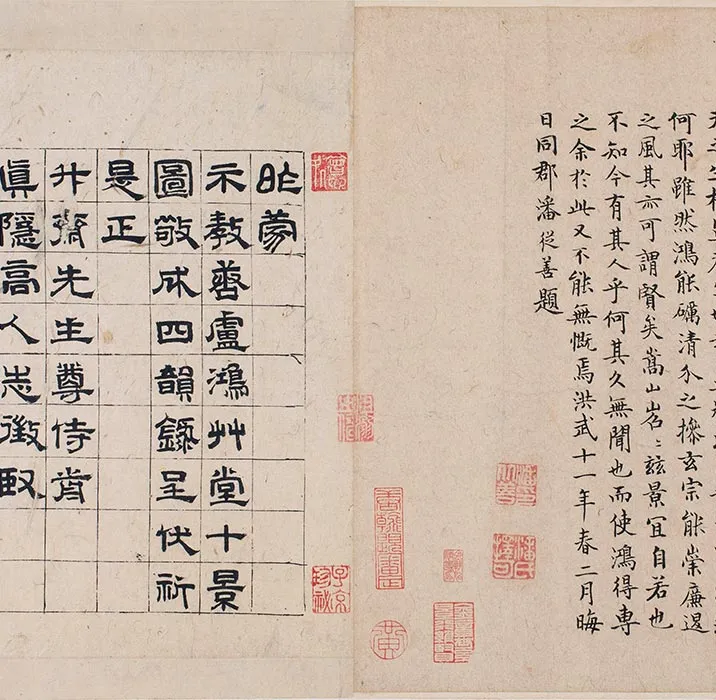 何耶雖然鴻能礪清介之操玄宗能崇廉退
之風其亦可謂賢矣嵩山岧〻茲景宜自若也
不知今有其人乎何其久無聞也而使鴻得專
之余於此又不能無慨焉洪武十一年春二月晦
日同郡潘從善題
昨蒙
示教盧鴻艸堂十景
圖敬成四韻錄呈伏祈
是正
升齋先生尊侍
眞隱高人志徵
子京珍祕